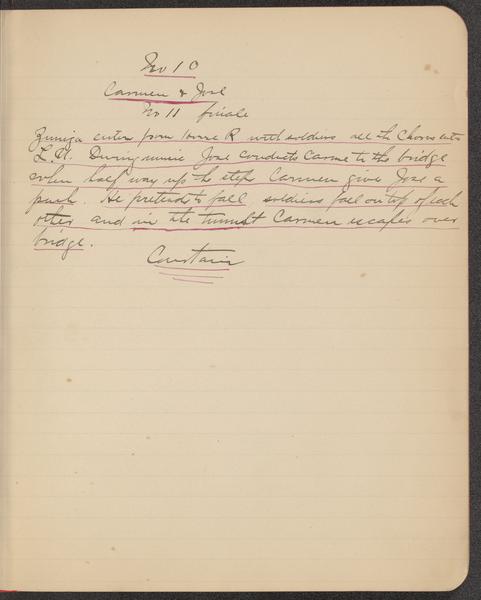 No 10
Carmen & José
No 11 finale
Zuniga enters from House R with soldiers all the Chorus enter
L.H. During music José conducts Carmen to the bridge
when half way up the steps Carmen give José a
push. He pretends to fall soldiers fall on top of each
other and in the tumult Carmen escapes over
bridge.
Curtain